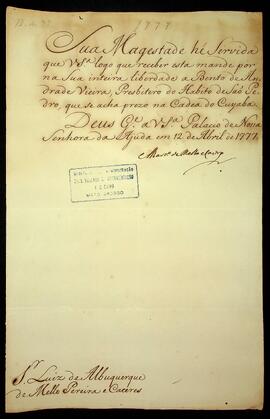 1777
Sua Magestade hé Servida
que V.S.ª logo que receber esta mande por
na Sua inteira liberdade a Bento de An-
drade Vieira, Presbetero do Habito de Saõ Pe-
dro, que se acha prezo na Cadea do Cuyaba.
Deus G.e a V.S.ª Palacio de Nossa
Senhora da Ajuda em 12 de Abril de 1777.
Mart.º de Mello e Castro
S.r Luiz de Albuquerque
de Mello Pereira e Caceres